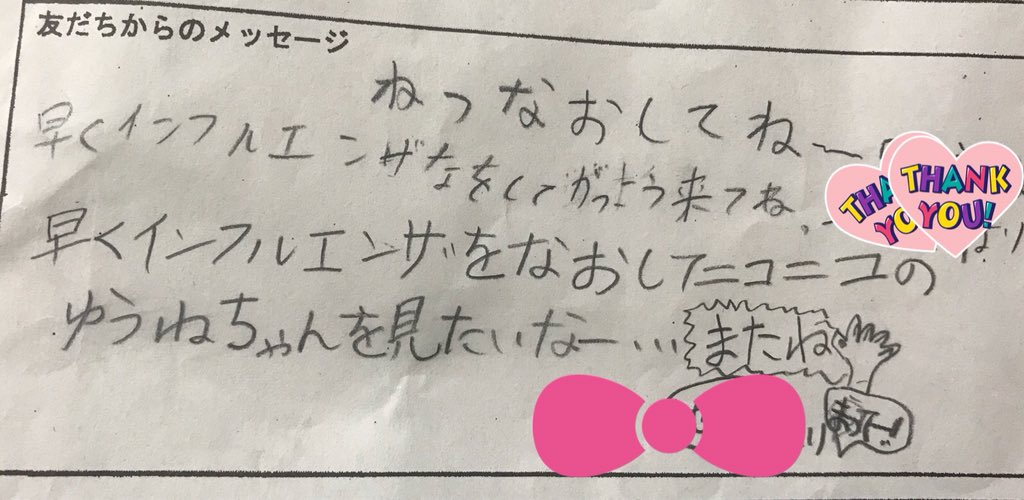 友だちからのメッセージ
ねつなおしてねー
早くインフルエンザなをしてがっょう来てね
早くインフルエンザをなおしてニコニコの
ゆうねちゃんを見たいなー…
またね
まってー!
THANK YOU!